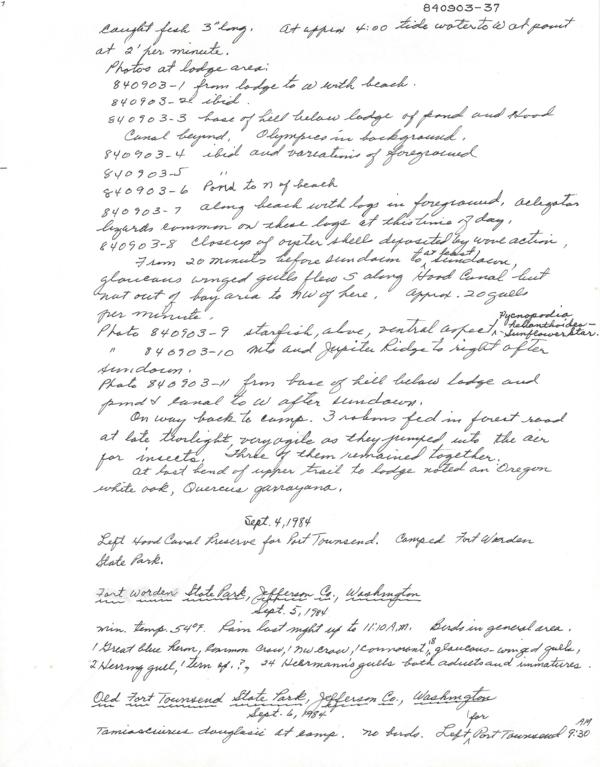 840903-37
caught fish 3" long. At approx 4:00 tide water to W at point
at 2' per minute.
Photos at lodge area:
840903-1 from lodge to W with beach.
840903-2 ibid.
840903-3 base of hill below lodge of pond and Hood
Canal beyond, Olympics in background.
840903-4 ibid and variations of foreground
840903-5 "
840903-6 Pond to N of beach
840903-7 along beach with logs in foreground, alligator
lizards common on these logs at this time of day.
840903-8 closeup of oyster shell deposited by wave action,
From 20 minutes before sundown to at least sundown,
glaucous winged gulls flew S along Hood Canal but
not out of bay area to NW of here. Approx. 20 gulls
per minute.
Photo 840903-9 starfish, above, ventral aspect, Pycnopodia helianthoides - Sunflower Star.
" 840903-10 Mts and Jupiter Ridge to right after
sundown.
Photo 840903-11 from base of hill below lodge and
pond & canal to W after sundown.
On way back to camp. 3 robins fed in forest road
at late twilight, very agile as they jumped into the air
for insects. Three of them remained together.
At last bend of upper trail to lodge noted an Oregon
white oak, Quercus garrayana.
Sept. 4, 1984
Left Hood Canal Preserve for Port Townsend. Camped Fort Worden
State Park.
Fort Worden State Park, Jefferson Co., Washington
Sept. 5, 1984
min. temp. 54°F. Rain last night up to 11:10 A.M. Birds in general area.
1 Great blue heron, common crow, 1 NW crow, 1 cormorant, 18 glaucous-winged gulls,
2 Herring gull, 1 tern sp.?, 24 Heermann's gulls both adults and immatures.
Old Fort Townsend State Park, Jefferson Co., Washington
Sept. 6, 1984
Tamiasciurus douglasii at camp. No birds. Left for Port Townsend 9:30 AM